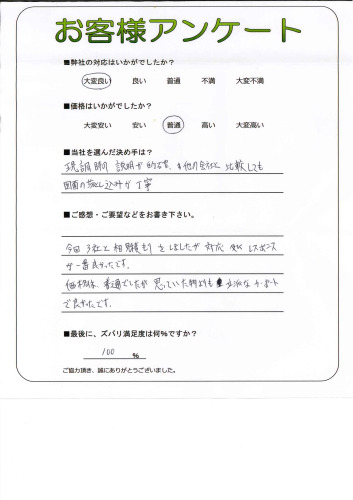 お客様アンケート
■弊社の対応はいかがでしたか？
大変良い 良い 普通 不満 大変不満
■価格はいかがでしたか？
大変安い 安い 普通 高い 大変高い
■当社を選んだ決め手は？
現調時の説明が的確、他の会社と比較しても
図面の落とし込みが丁寧
■ご感想・ご要望などをお書き下さい。
今回3社と相見積もりをしましたが対応 レスポンス
が一番良かったです。
価格は、普通でしたが思っていた物よりも立派なカーポート
で良かったです。
■最後に、ズバリ満足度は何%ですか？
100 %
ご協力頂き、誠にありがとうございました。